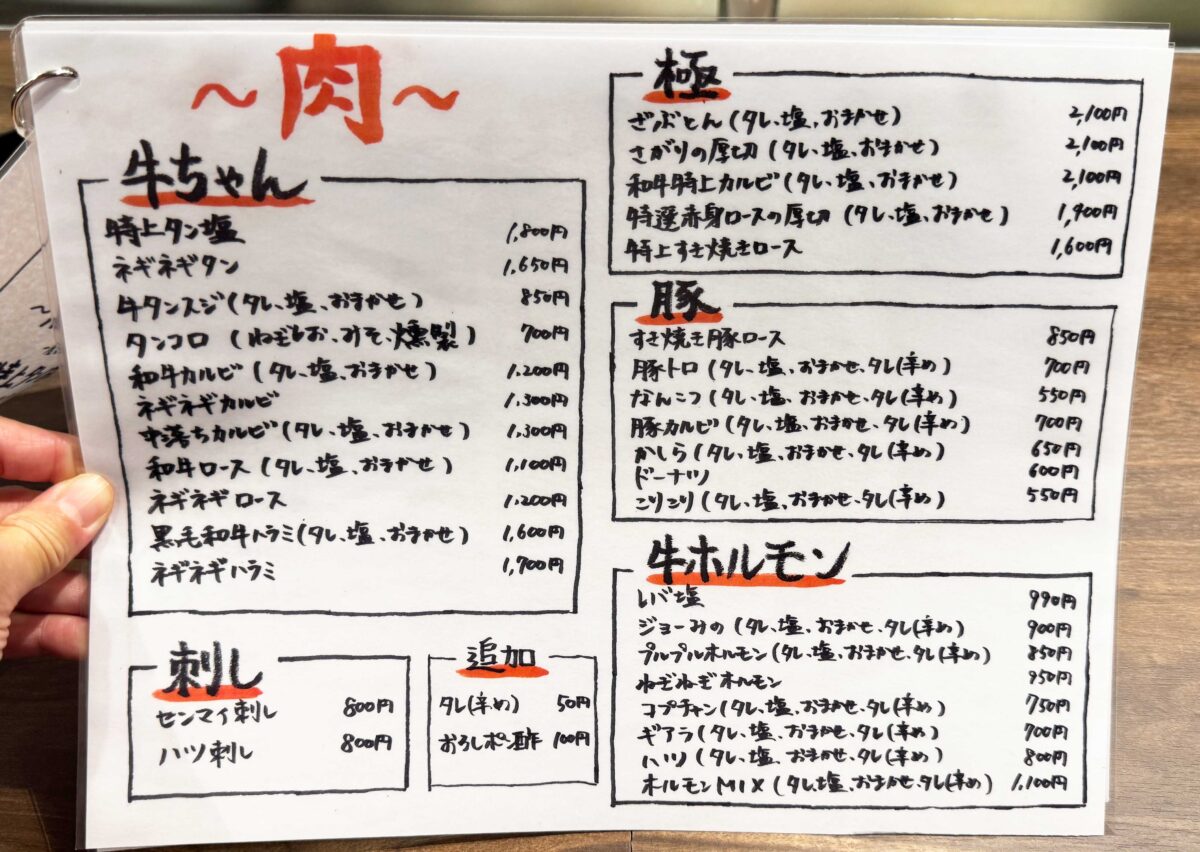 ～肉～
牛ちゃん
特上タン塩 1,800円
ネギネギタン 1,650円
牛タンスジ(タレ、塩、おまかせ) 850円
タンコロ (ねぎしお、みそ、燻製) 700円
和牛カルビ (タレ、塩、おまかせ) 1,200円
ネギネギカルビ 1,300円
中落ちカルビ(タレ、塩、おまかせ) 1,300円
和牛ロース (タレ、塩、おまかせ) 1,100円
ネギネギロース 1,200円
黒毛和牛ハラミ(タレ、塩、おまかせ) 1,600円
ネギネギハラミ 1,700円
刺し
センマイ刺し 800円
ハツ刺し 800円
追加
タレ(辛め) 50円
おろしポン酢 100円
極
ざぶとん(タレ、塩、おまかせ) 2,100円
さがりの厚切(タレ、塩、おまかせ) 2,100円
和牛特上カルビ(タレ、塩、おまかせ) 2,100円
特選赤身ロースの厚切 (タレ、塩、おまかせ) 1,900円
特上すき焼きロース 1,600円
豚
すき焼き豚ロース 850円
豚トロ (タレ、塩、おまかせ、タレ(辛め) 700円
なんこつ (タレ、塩、おまかせ、タレ(辛め) 550円
豚カルビ (タレ、塩、おまかせ、タレ(辛め) 700円
かしら (タレ、塩、おまかせ、タレ(辛め) 650円
ドーナツ 600円
こりこり(タレ、塩、おまかせ、タレ(辛め) 550円
牛ホルモン
レバ塩 990円
ジョーみの (タレ、塩、おまかせ、タレ(辛め) 900円
プルプルホルモン(タレ、塩、おまかせ、タレ(辛め) 850円
ねぎねぎホルモン 950円
コプチャン(タレ、塩、おまかせ、タレ(辛め) 750円
ギアラ (タレ、塩、おまかせ、タレ(辛め) 700円
ハツ (タレ、塩、おまかせ、タレ(辛め) 800円
ホルモンMIX (タレ、塩、おまかせ、タレ(辛め) 1,100円